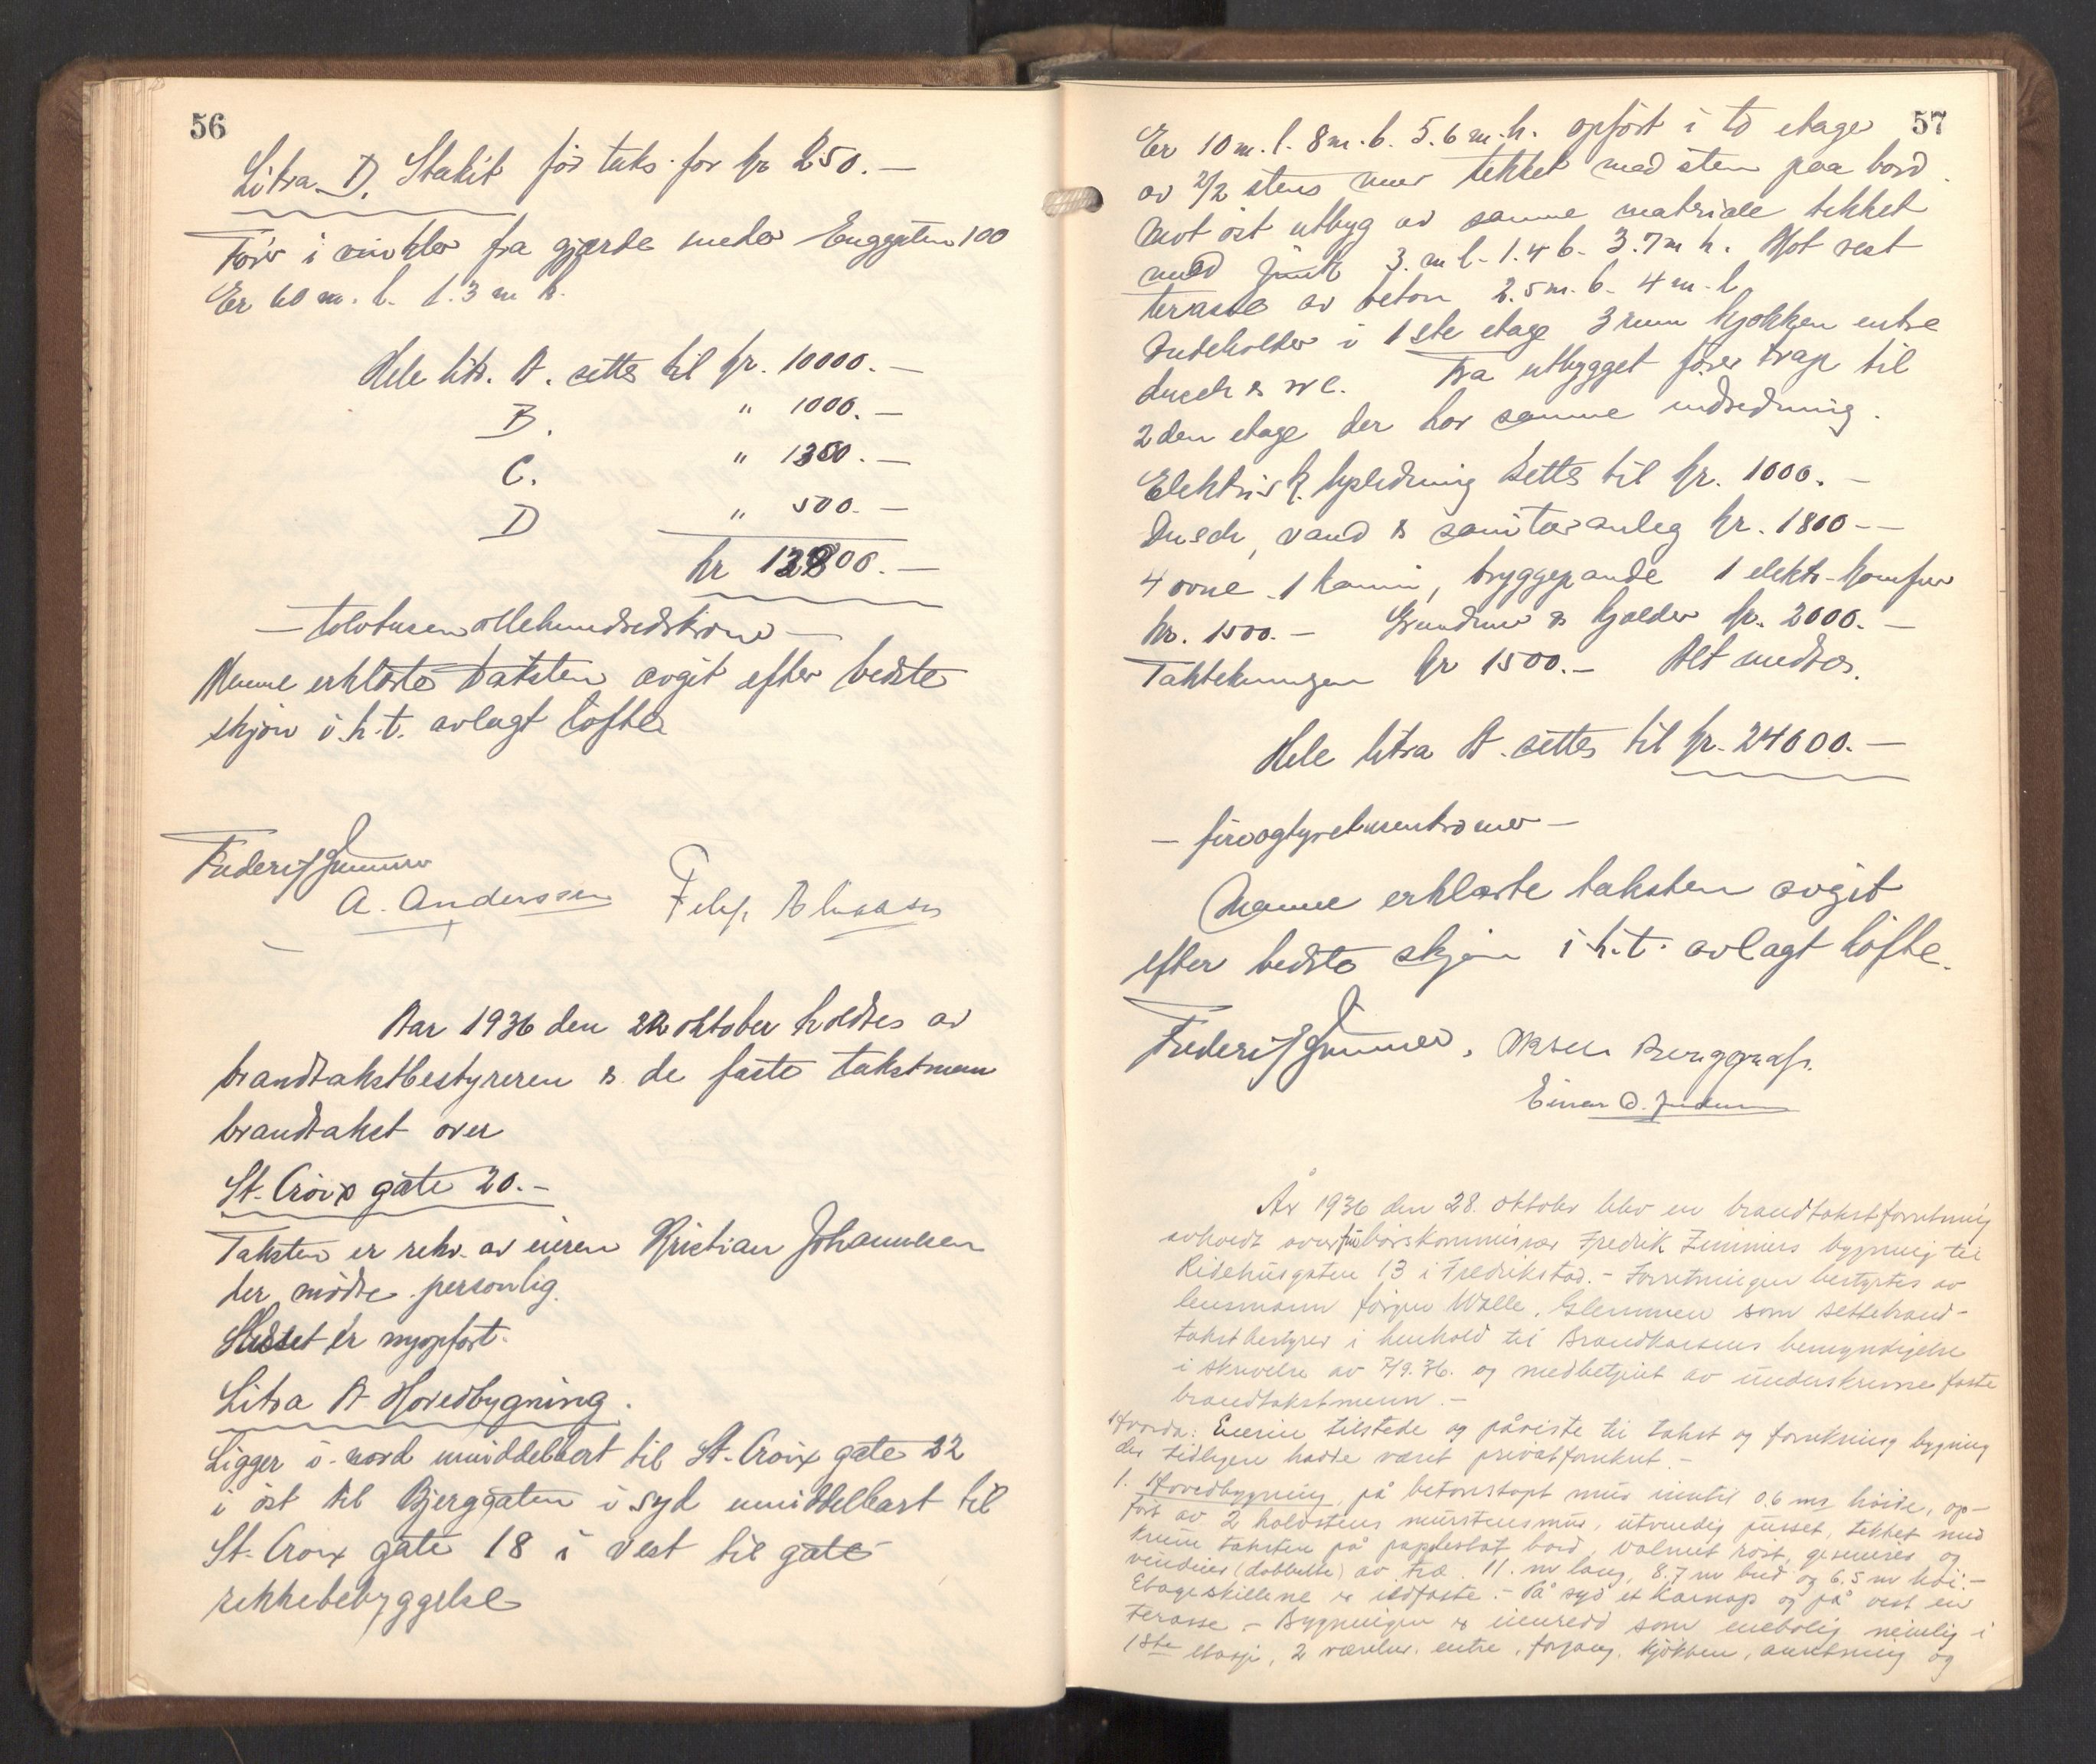 56
Litra D. Stakit før taks. for kr 250.—
Fører i vinkler fra gjærde meder Enggaten 100
Er 60 m. l. 1.3 m h.
Hele litr. A. settes til kr. 10000.—
B. " 1000.—
C. " 1300.—
D " 500.—
kr 12800.—
— tolvtusenottehundredekroner —
Mænne erklærte taksten avgit efter bedste
skjøn i h.t. avlagt løfte
A. Anderssen
Aar 1936 den 22 oktober holdtes av
brandtakstbestyreren & de faste takstmæn
brandtakst over
St. Croix gate 20.—
Taksten er rekv. av eieren Kristian Johannesen
der møtte personlig.
Huset er nyopført.
Litra A Hovedbygning.
Ligger i nord umiddelbart til St. Croix gate 22
i øst til Bjerggaten i syd umiddelbart til
St. Croix gate 18 i vest til gate
rekkebebyggelse
57
Er 10 m. l. 8 m. b. 5.6 m. h. opført i to etager
av 2/2 stens mur tekket med sten paa bord.
Mot øst utbyg av samme materiale tekket
med 3. m l - 1.4 b - 3.7 m h. Mot vest
terasse av beton 2.5 m. b - 4 m. l.
Indeholder i 1ste etage 3 rum kjøkken entre
dusch & wc. Fra utbygget fører trap til
2den etage der har samme indredning.
Elektrisk opledning settes til kr. 1000.—
Dusch, vand & sanitæranleg kr. 1800.—
4 ovne 1 kamin, bryggepande 1 elektr. komfur
kr. 1500.— Grundmur & kjælder kr. 2000.—
Taktekningen kr 1500.— Alt medtas.
Hele litra A. settes til kr. 24000.—
— fireogtyvetusenkroner —
Mænne erklærte taksten avgit
efter bedste skjøn i h.t. avlagt løfte.
År 1936 den 28. oktober blev en brandtakstforretning
avholdt over Fredrik Zimmers bygning til
Ridehusgaten 13 i Fredrikstad. - Forretningen bestyrtes av
lensmann Jørgen Walle, Glemmen som settebrand-
takstbestyrer i henhold til Brandkassens bemyndigelse
i skrivelse av 7/9.36. og medbetjent av underskrevne faste
brandtakstmenn. -
Hvorda: Eieren tilstede og påviste til takst og forsikring bygning
der tidligere hadde været privatforsikret. -
1. Hovedbygning, på betonstøpt mur inntil 0.6 mr høide, op-
ført av 2 halvstens murstensmur, utvendig pusset, tekket med
krum taksten på papbelagt bord, valmet røst, gesimser og
vinduer (dobbelte) av træ. 11. m lang, 8.7 m bred og 6.5 m høi. -
Etageskillene er ildfaste. - På syd et karnap og på vest en
terasse. - Bygningen er innredd som enebolig nemlig i
1ste etasje, 2 værelser, entre, forgang, kjøkken, anretning og